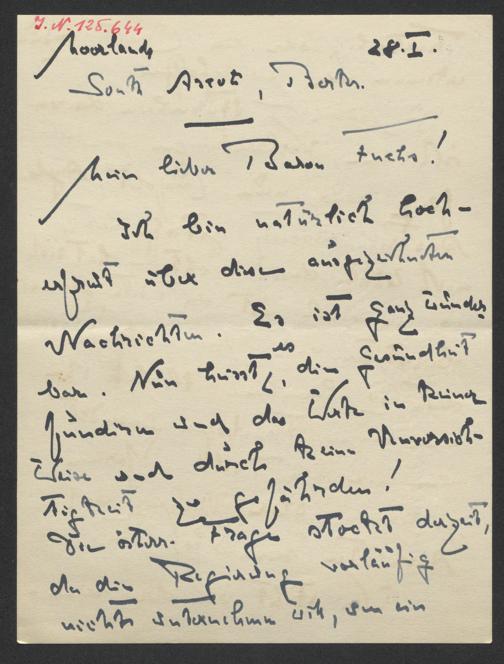 J.N. 125.644
Moorlands 28.I.
South Ascot, Berks.
Mein lieber Baron Fuchs!
Ich bin natürlich hoch-
erfreut über diese ausgezeichneten
Nachrichten. Es ist ganz wunder-
bar. Nun heisst es, die Gesundheit
fundieren und das Werk in keiner
Weise und durch keine Unvorsich-
tigkeit zu gefährden!
Die österr. Frage stockt derzeit,
da die Regierung vorläufig
nichts unternehmen will, um ein